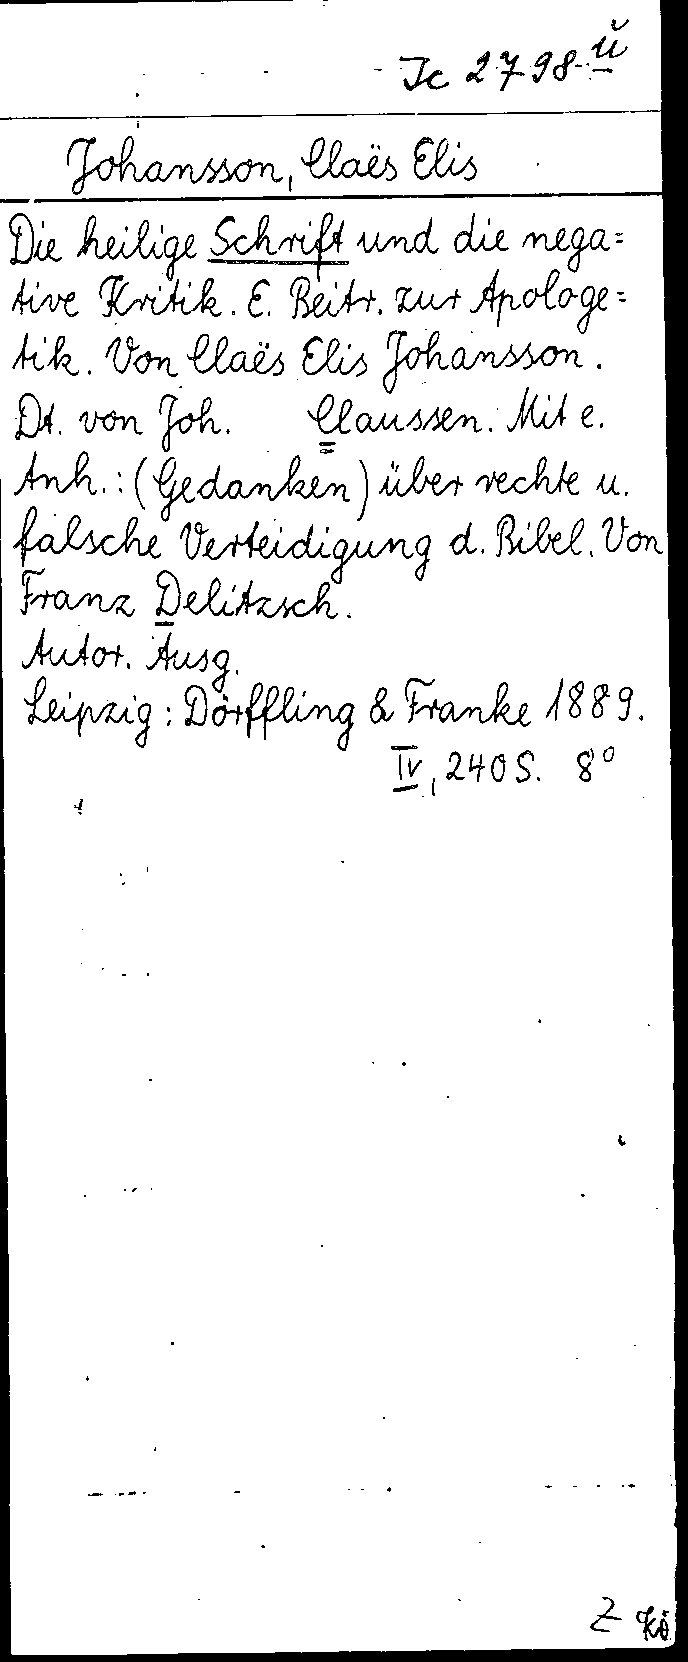 Ic 2798-ŭ
Johansson, Claës Elis
Die heilige Schrift und die nega=
tive Kritik. E. Beitr. zur Apologe=
tik. Von Claës Elis Johansson.
Dt. von Joh. Claussen. Mit e.
Anh.: (Gedanken) über rechte u.
falsche Verteidigung d. Bibel. Von
Franz Delitzsch.
Autor. Ausg.
Leipzig: Dörffling & Franke 1889.
IV, 240 S. 8°
Z kö